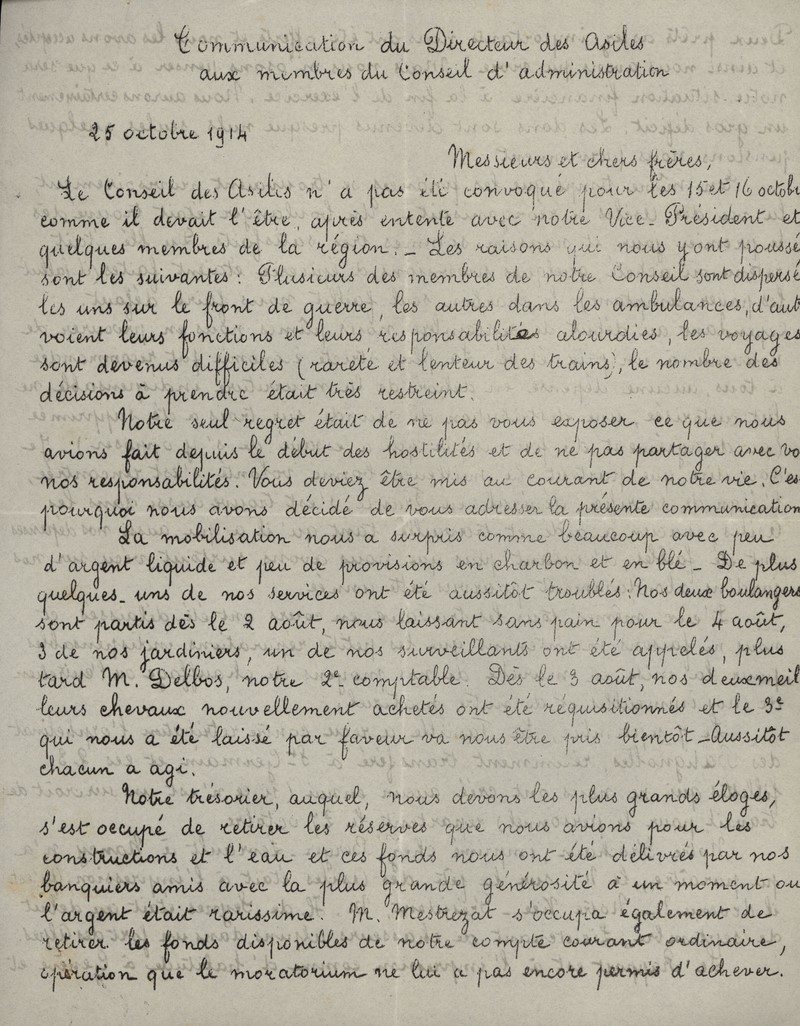 Communication du Directeur des Asiles
aux membres du Conseil d'administration
25 octobre 1914
Messieurs et chers frères,
Le Conseil des Asiles n'a pas été convoqué pour les 15 et 16 octob
comme il devait l'être, après entente avec notre Vice-Président et
quelques membres de la région. _ Les raisons qui nous y ont poussé
sont les suivantes : Plusieurs des membres de notre Conseil sont dispersé
les uns sur le front de guerre, les autres dans les ambulances, d'aut
voient leurs fonctions et leurs responsabilités alourdies, les voyages
sont devenus difficiles (rareté et lenteur des trains), le nombre des
décisions à prendre était très restreint.
Notre seul regret était de ne pas vous exposer ce que nous
avions fait depuis le début des hostilités et de ne pas partager avec vo
nos responsabilités. Vous deviez être mis au courant de notre vie. C'es
pourquoi nous avons décidé de vous adresser la présente communication
La mobilisation nous a surpris comme beaucoup avec peu
d'argent liquide et peu de provisions en charbon et en blé _ De plus
quelques-uns de nos services ont été aussitôt troublés : Nos deux boulangers
sont partis dès le 2 août, nous laissant sans pain pour le 4 août,
3 de nos jardiniers, un de nos surveillants ont été appelés, plus
tard M. Delbos, notre 2e comptable. Dès le 3 août, nos deux meil
leurs chevaux nouvellement achetés ont été réquisitionnés et le 3e
qui nous a été laissé par faveur va nous être pris bientôt _ Aussitôt
chacun a agi.
Notre trésorier, auquel, nous devons les plus grands éloges,
s'est occupé de retirer les réserves que nous avions pour les
constructions et l'eau et ces fonds nous ont été délivrés par nos
banquiers amis avec la plus grande générosité à un moment ou
l'argent était rarissime. M. Mestrezat s'occupa également de
retirer les fonds disponibles de notre compte courant ordinaire,
opération que le moratorium ne lui a pas encore permis d'achever.